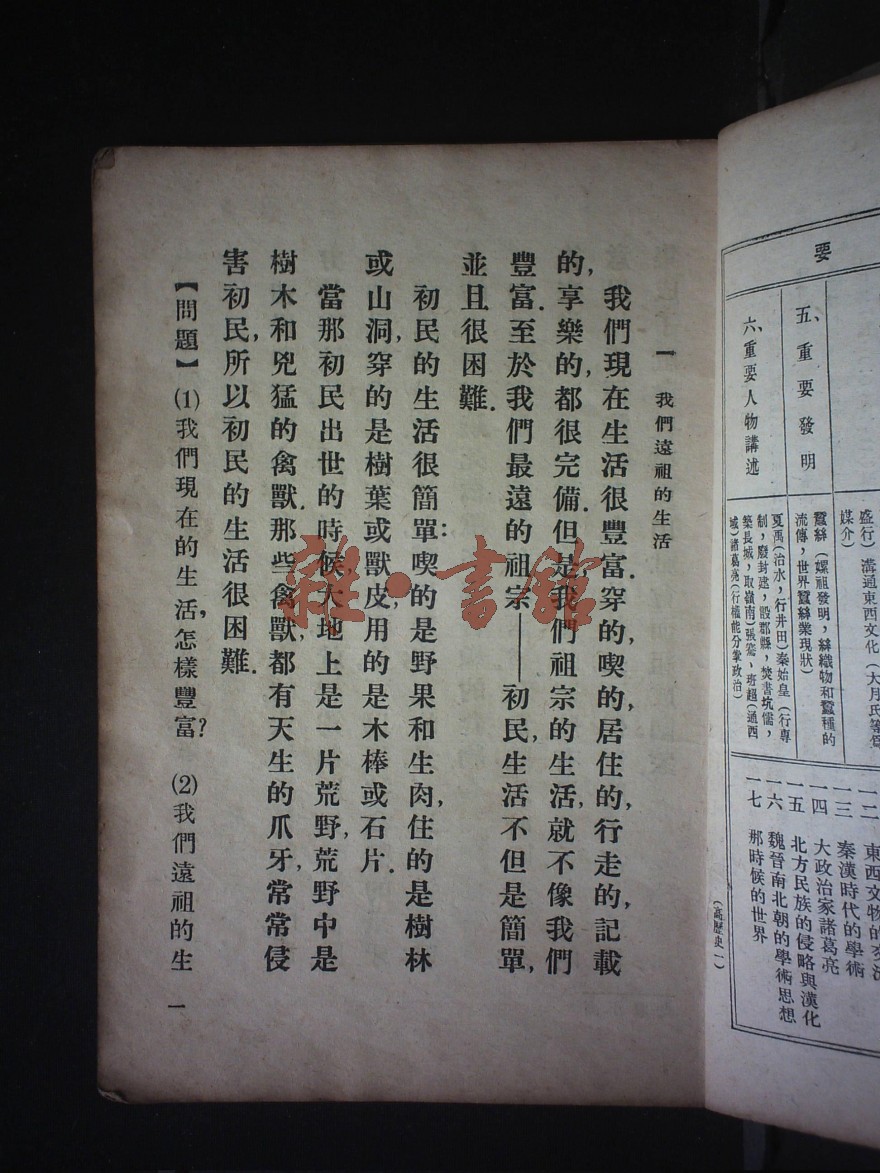 要
五、重要發明
六、重要人物講述
盛行）溝通東西文化（大月氏
媒介）
蠶絲（嫘祖發明，絲織物和蠶種的
流傳，世界蠶絲業現狀）
夏禹（治水，行井田）秦始皇（行專
制，廢封建，設郡縣，焚書坑儒，
築長城，取嶺南）張騫、班超（通西
域）諸葛亮（行權能分掌政治）
一二 東西文物的交流
一三 秦漢時代的學術
一四 大政治家諸葛亮
一五 北方民族的侵略與漢化
一六 魏晉南北朝的學術思想
一七 那時候的世界
（高歷史一）
一 我們遠祖的生活
我們現在生活很豐富．穿的，喫的，居住的，行走的，記載
的，享樂的，都很完備．但是，我們祖宗的生活，就不像我們
豐富．至於我們最遠的祖宗——初民，生活不但是簡單，
並且很困難．
初民的生活很簡單：喫的是野果和生肉，住的是樹林
或山洞，穿的是樹葉或獸皮，用的是木棒或石片．
當那初民出世的時候，大地上是一片荒野，荒野中是
樹木和兇猛的禽獸．那些禽獸，都有天生的爪牙，常常侵
害初民，所以初民的生活很困難．
【問題】 (1)我們現在的生活，怎樣豐富？ (2)我們遠祖的生
一
雜·書館